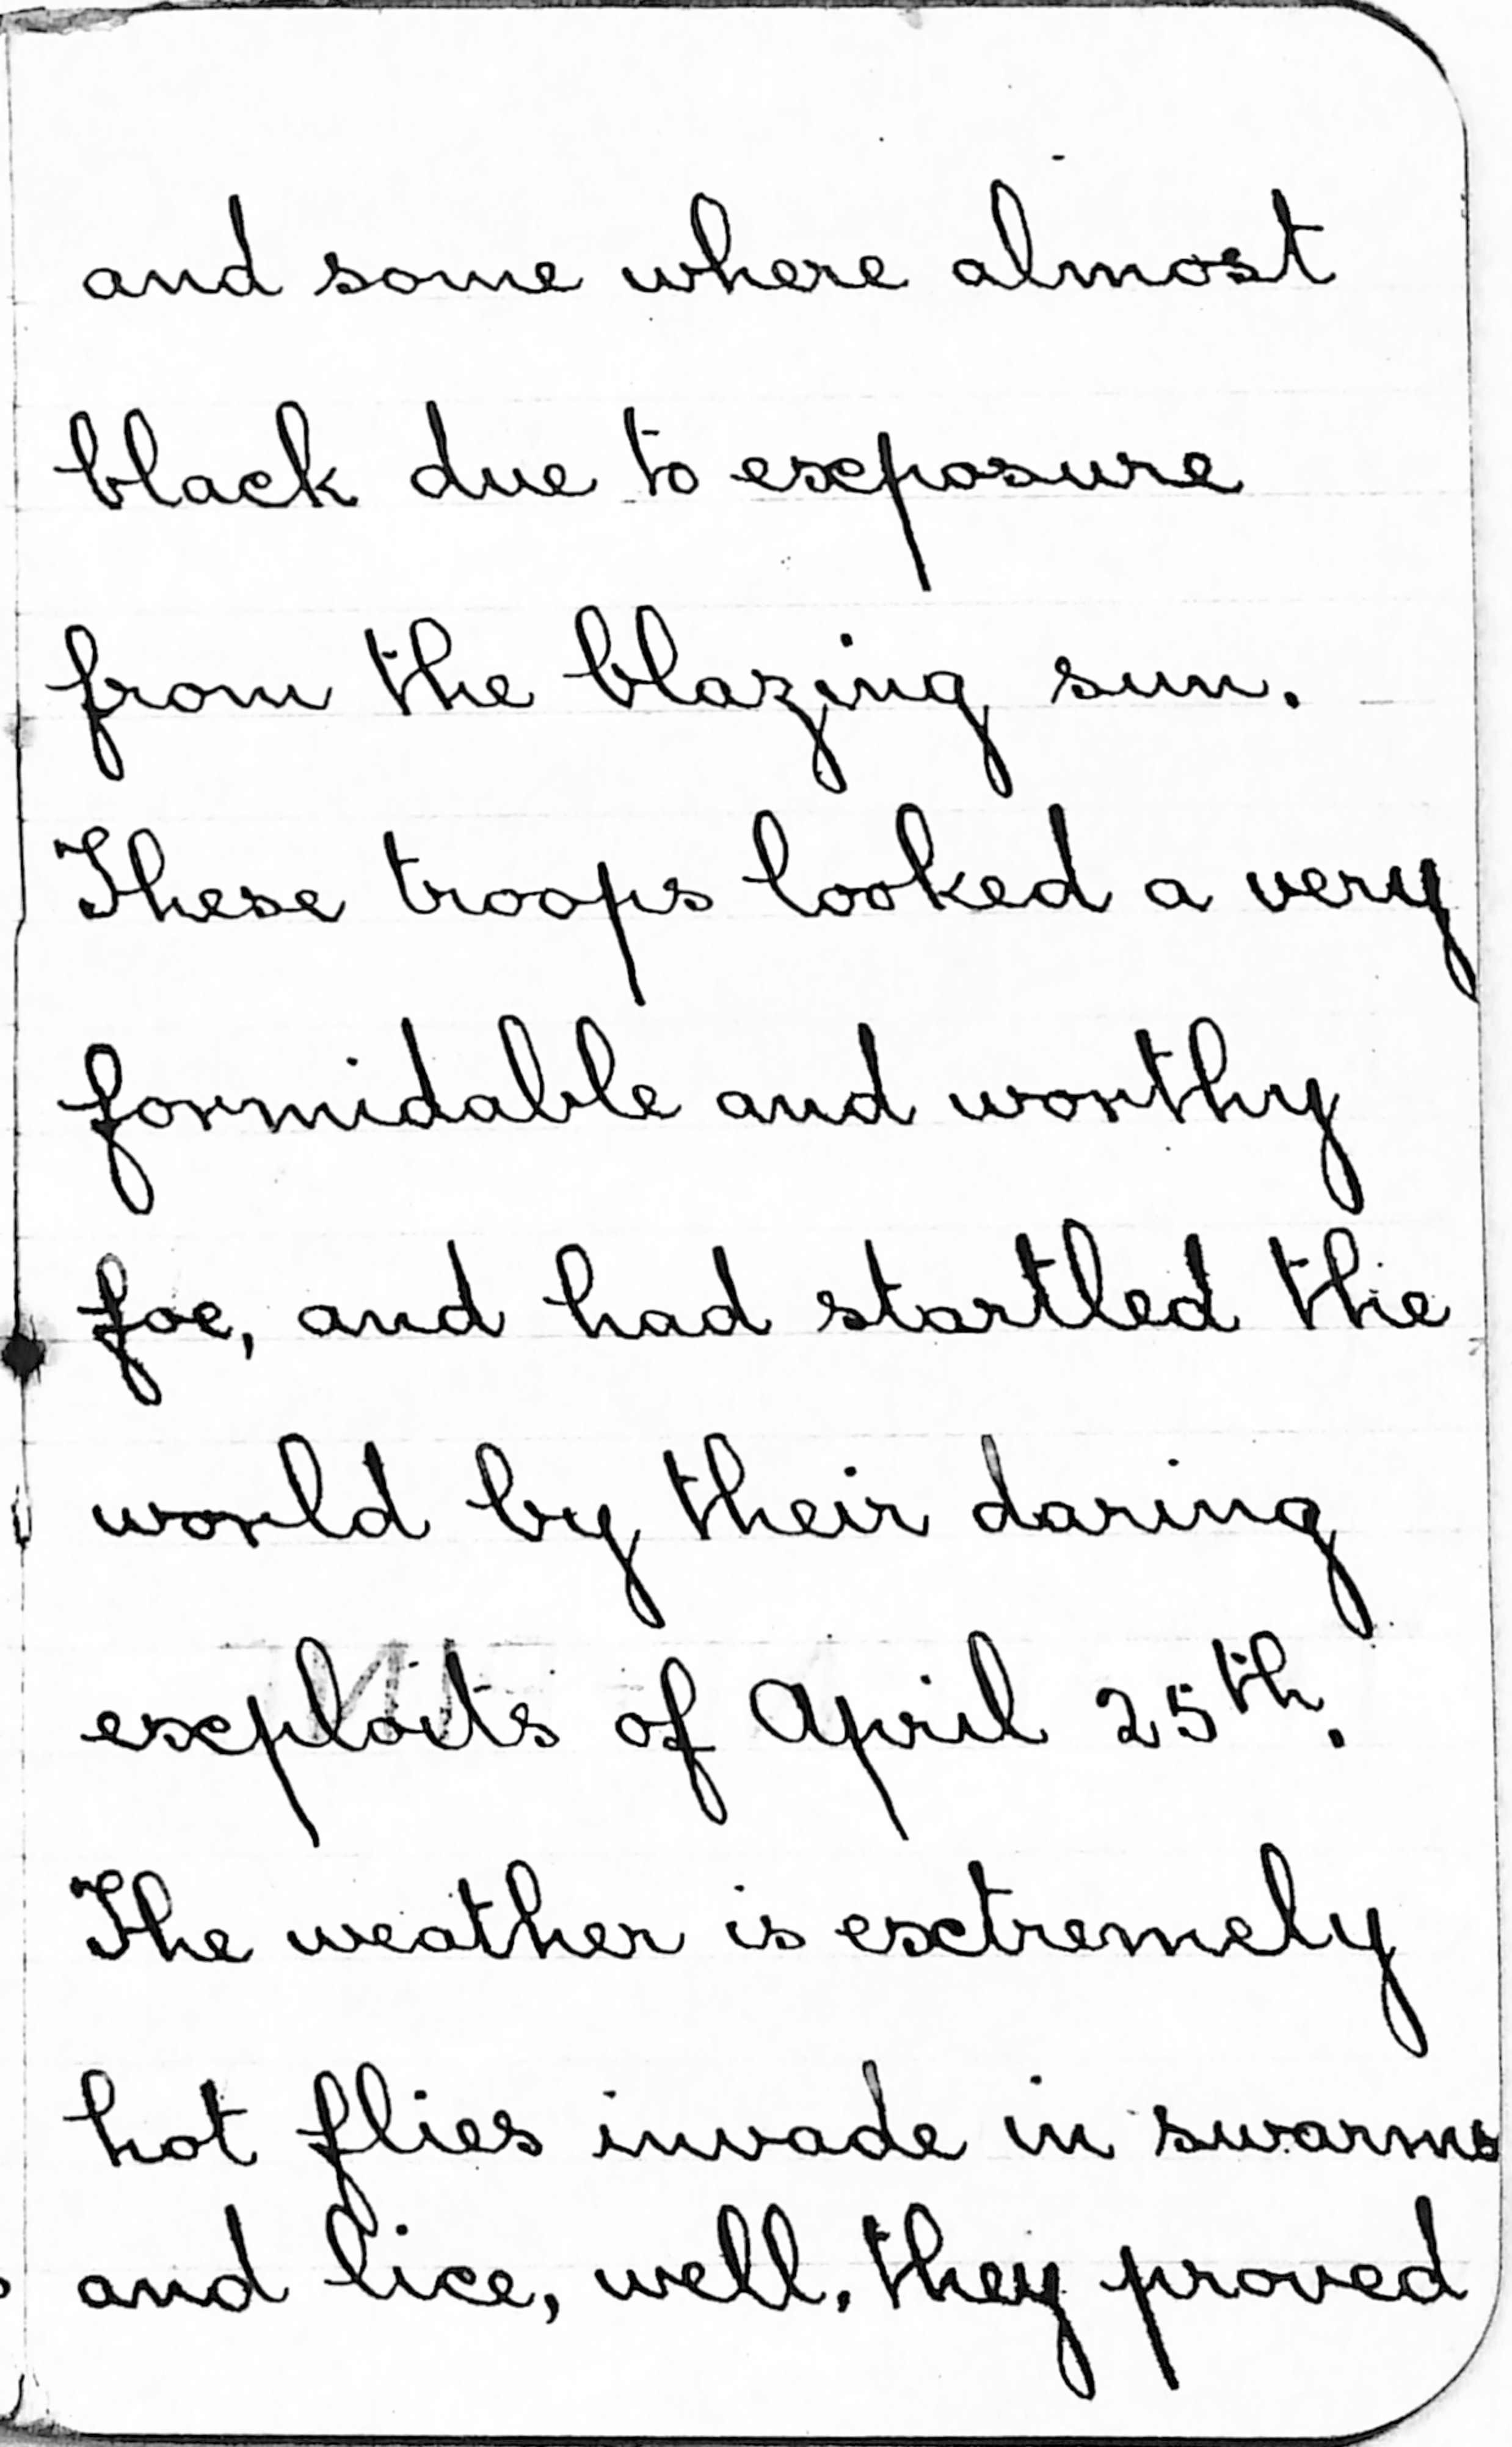 and some where almost
black due to exposure
from the blazing sun.
These troops looked a very
formidable and worthy
foe, and had startled the
world by their daring
exploits of April 25th.
The weather is extremely
hot flies invade in swarms
and lice, well, they proved